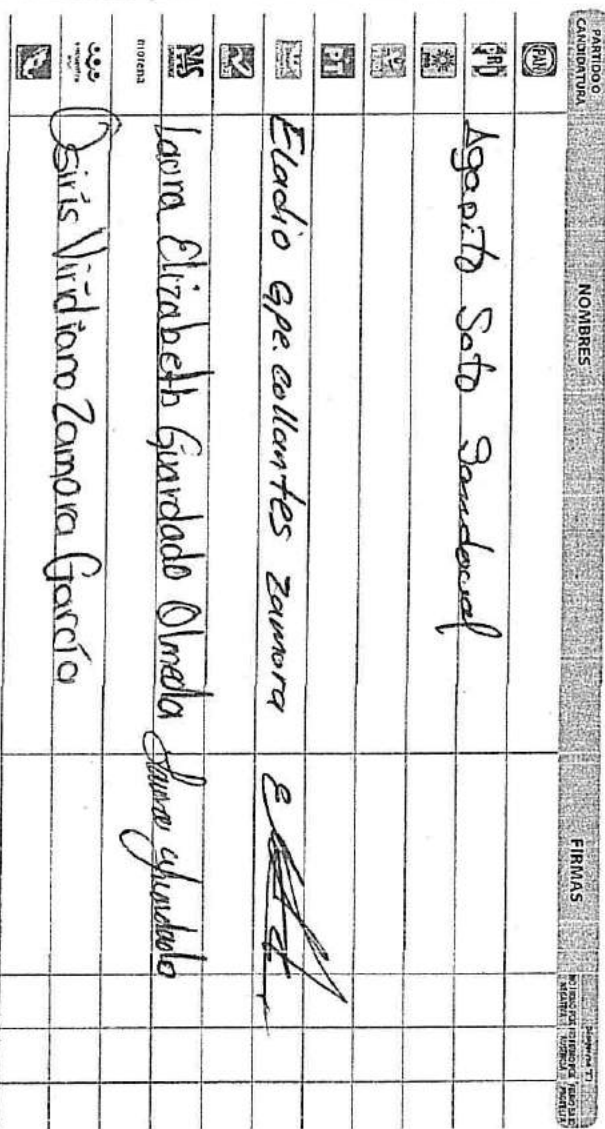 PARTIDO O CANDIDATURA NOMBRES FIRMAS
PAN
PRD Agapito Soto Sandoval
PT
Eladio Gpe. Collantes Zamora
PAS
Laura Elizabeth Guardado Olmeda
morena
encuentro
Osiris Viridiana Zamora García